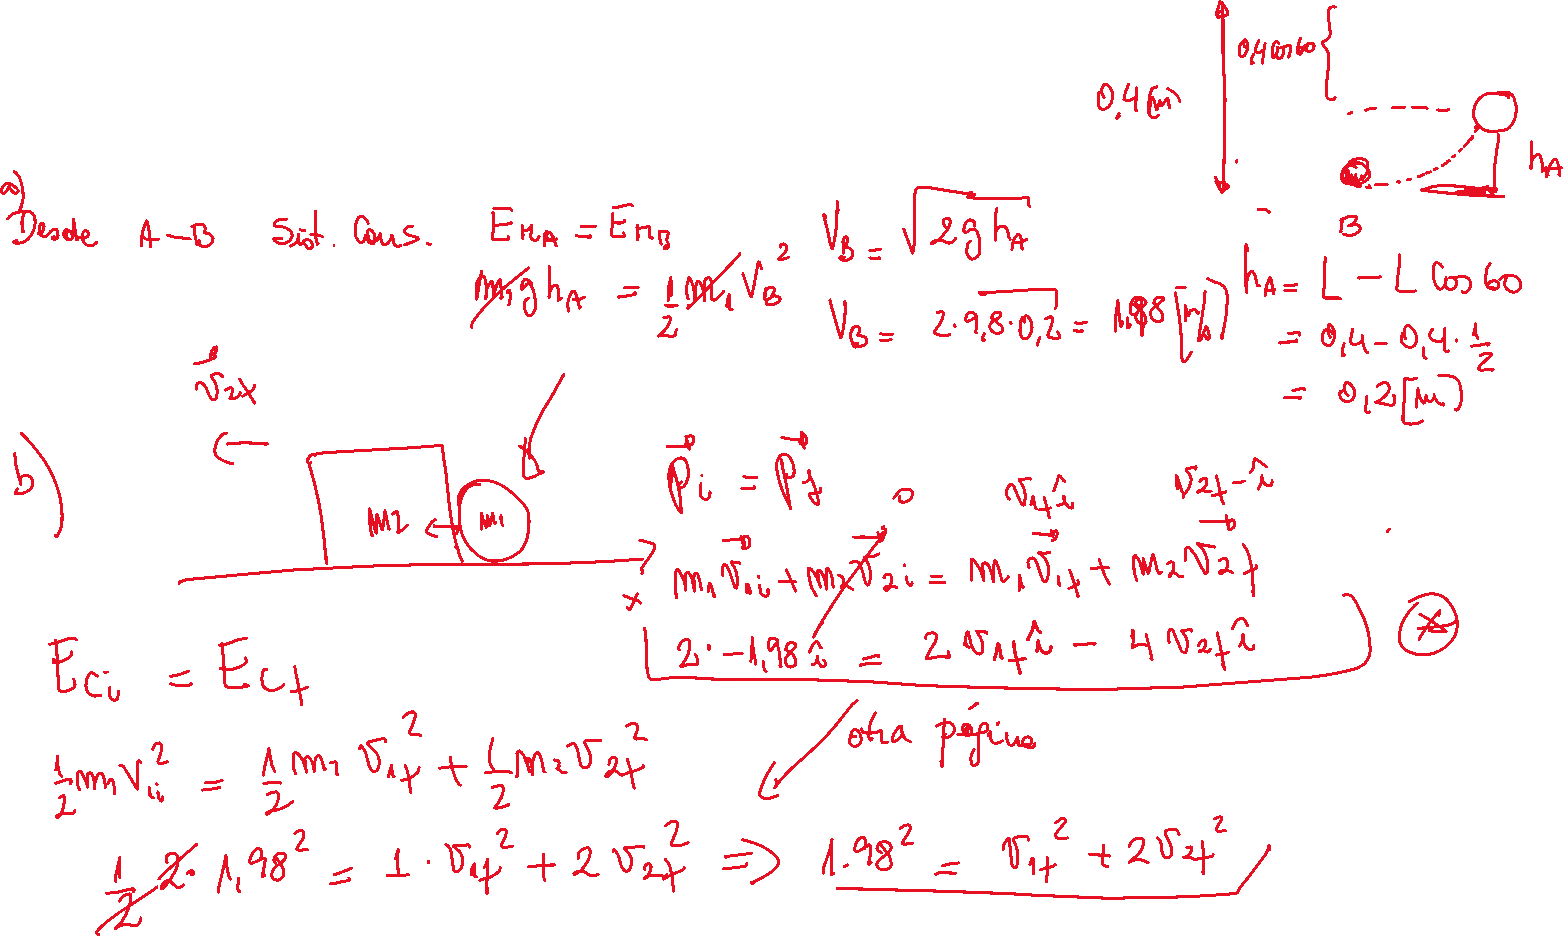 0,4 cos 60
0,4 [m]
h_A
B
a)
Desde A-B Sist. Cons. E_{MA} = E_{MB} V_B = \sqrt{2 g h_A}
m_1 g h_A = \frac{1}{2} m_1 V_B^2 V_B = \sqrt{2·9,8·0,2} = 1,98 [m/s]
h_A = L - L cos 60
= 0,4 - 0,4·\frac{1}{2}
= 0,2 [m]
\vec{v}_{2f}
b)
m2 m1
x
\vec{P}_i = \vec{P}_f
0 v_{1f} \hat{i} v_{2f} -\hat{i}
m_1 \vec{v}_{1i} + m_2 \vec{v}_{2i} = m_1 \vec{v}_{1f} + m_2 \vec{v}_{2f}
2·-1,98 \hat{i} = 2 v_{1f} \hat{i} - 4 v_{2f} \hat{i} *
E_{ci} = E_{cf}
otra página
\frac{1}{2} m_1 v_{1i}^2 = \frac{1}{2} m_1 v_{1f}^2 + \frac{1}{2} m_2 v_{2f}^2
\frac{1}{2} 2· 1,98^2 = 1· v_{1f}^2 + 2 v_{2f}^2 => 1.98^2 = v_{1f}^2 + 2 v_{2f}^2